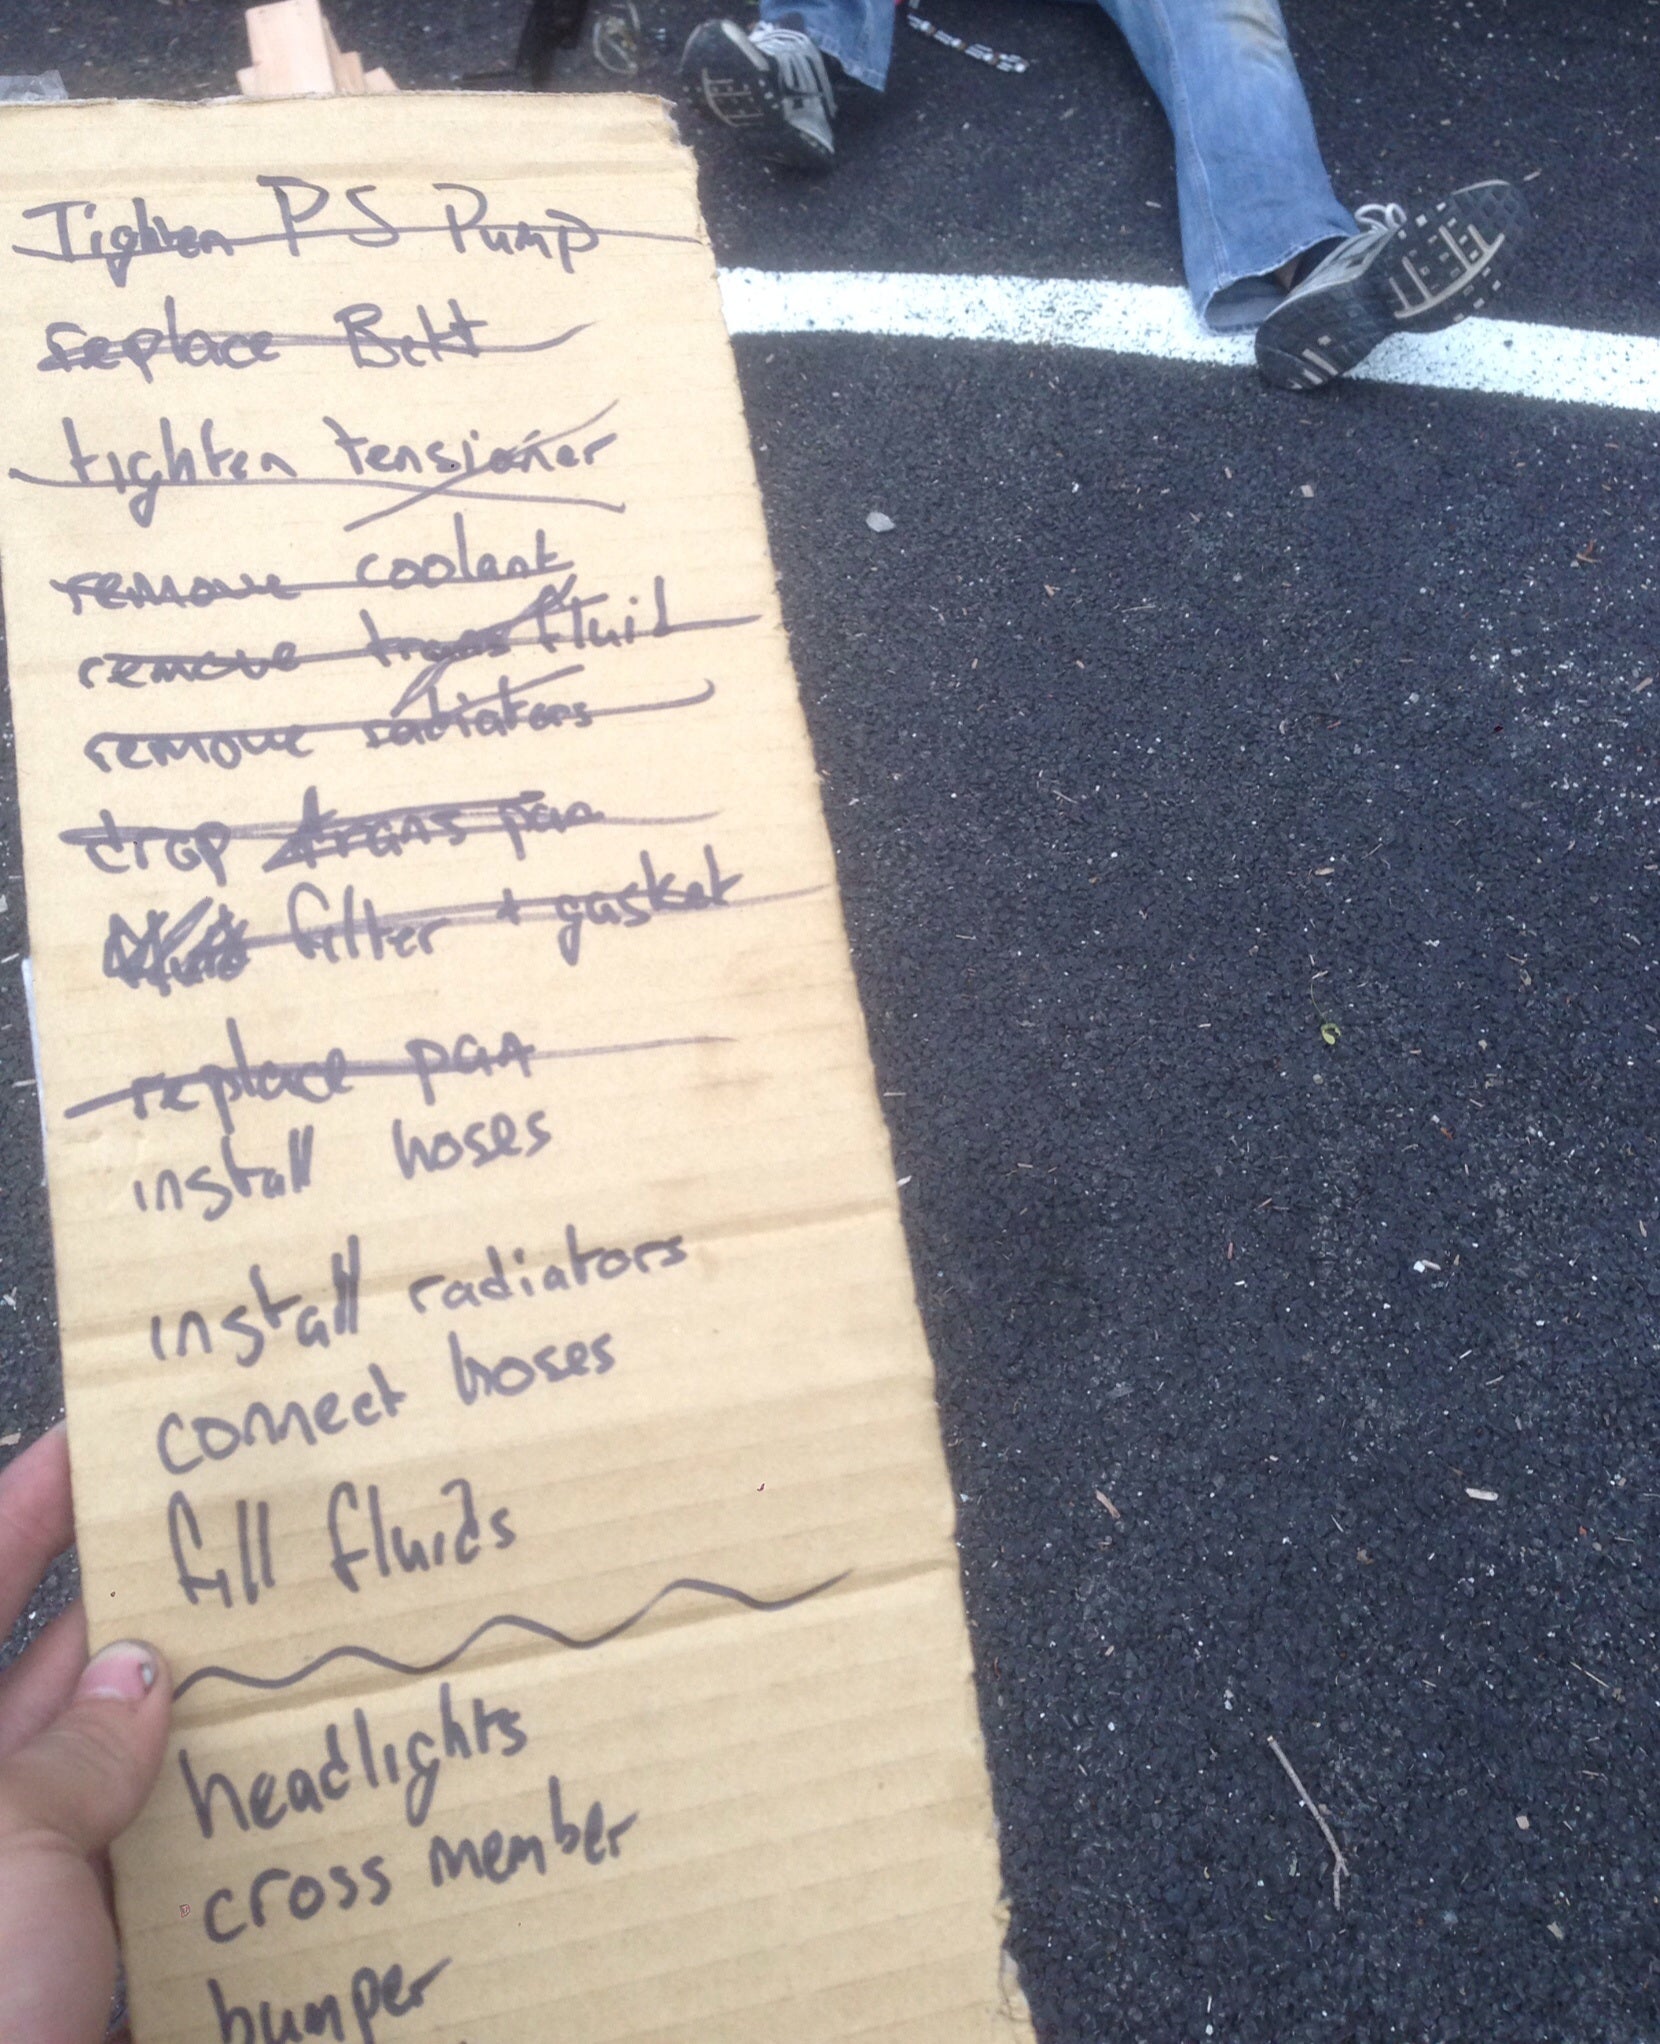 Tighten PS Pump
replace Belt
tighten tensioner
remove coolant
remove trans fluid
remove radiators
drop trans pan
filter + gasket
replace pan
install hoses
install radiators
connect hoses
fill fluids
headlights
cross member
bumper